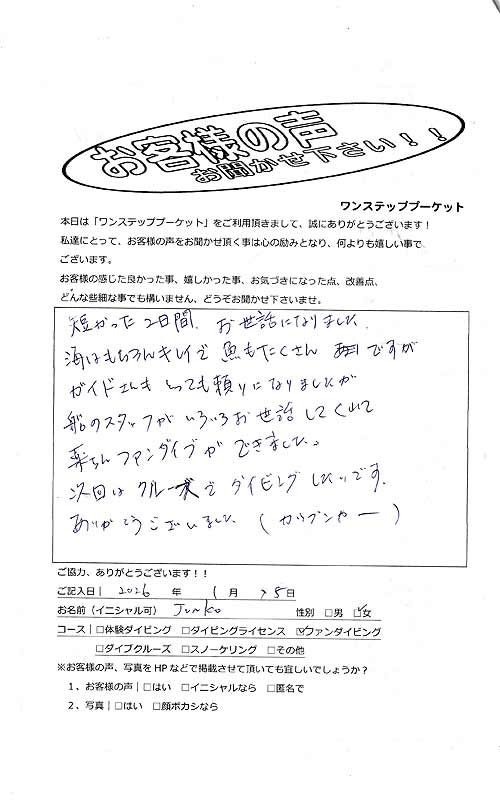 お客様の声
お聞かせ下さい！！
ワンステッププーケット
本日は「ワンステッププーケット」をご利用頂きまして、誠にありがとうございます！
私達にとって、お客様の声をお聞かせ頂く事は心の励みとなり、何よりも嬉しい事で
ございます。
お客様の感じた良かった事、嬉しかった事、お気づきになった点、改善点、
どんな些細な事でも構いません、どうぞお聞かせ下さいませ。
短かった2日間、お世話になりました。
海はもちろんキレイで魚もたくさん ですが
ガイドさんもとっても頼りになりましたが
船のスタッフがいろいろお世話してくれて
楽ちんファンダイブができました。
次回はクルーズでダイビングしたいです。
ありがとうございました（カップンカー）
ご協力、ありがとうございます！！
ご記入日| 2026 年 1月 25日
お名前（イニシャル可） Junko 性別 □男 ☑女
コース|□体験ダイビング □ダイビングライセンス ☑ファンダイビング
□ダイブクルーズ □スノーケリング □その他
※お客様の声、写真をHPなどで掲載させて頂いても宜しいでしょうか？
１、お客様の声|□はい □イニシャルなら □匿名で
２、写真|□はい □顔ボカシなら